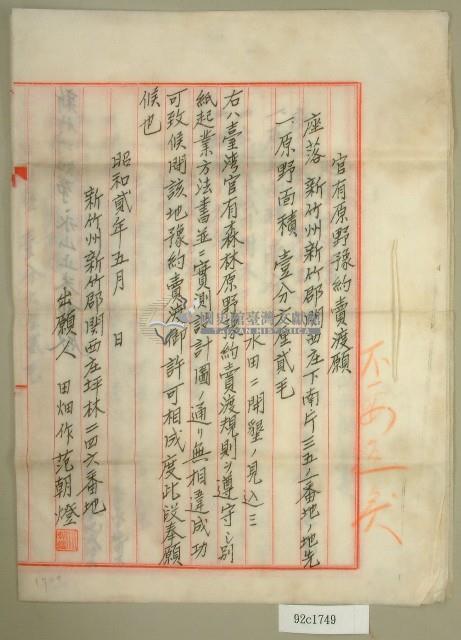 官有原野豫約賣渡願
座落 新竹州新竹郡関西庄下南片三五ノ二番地ノ地先
一、原野面積 壹分 厘貳毛
水田ニ開墾ノ見込ミ
右ハ臺湾官有森林原野豫約賣渡規則ヲ遵守シ別
紙起業方法書並ニ實測 計圖ノ通リ無相違成功
可致候間該地豫約賣渡御許可相成度此段奉願
候也
昭和貳年五月 日
新竹州新竹郡関西庄坪林二四六番地
出願人 田畑作 范朝燈
國史館臺灣文獻館
TAIWAN HISTORICA
92c1749